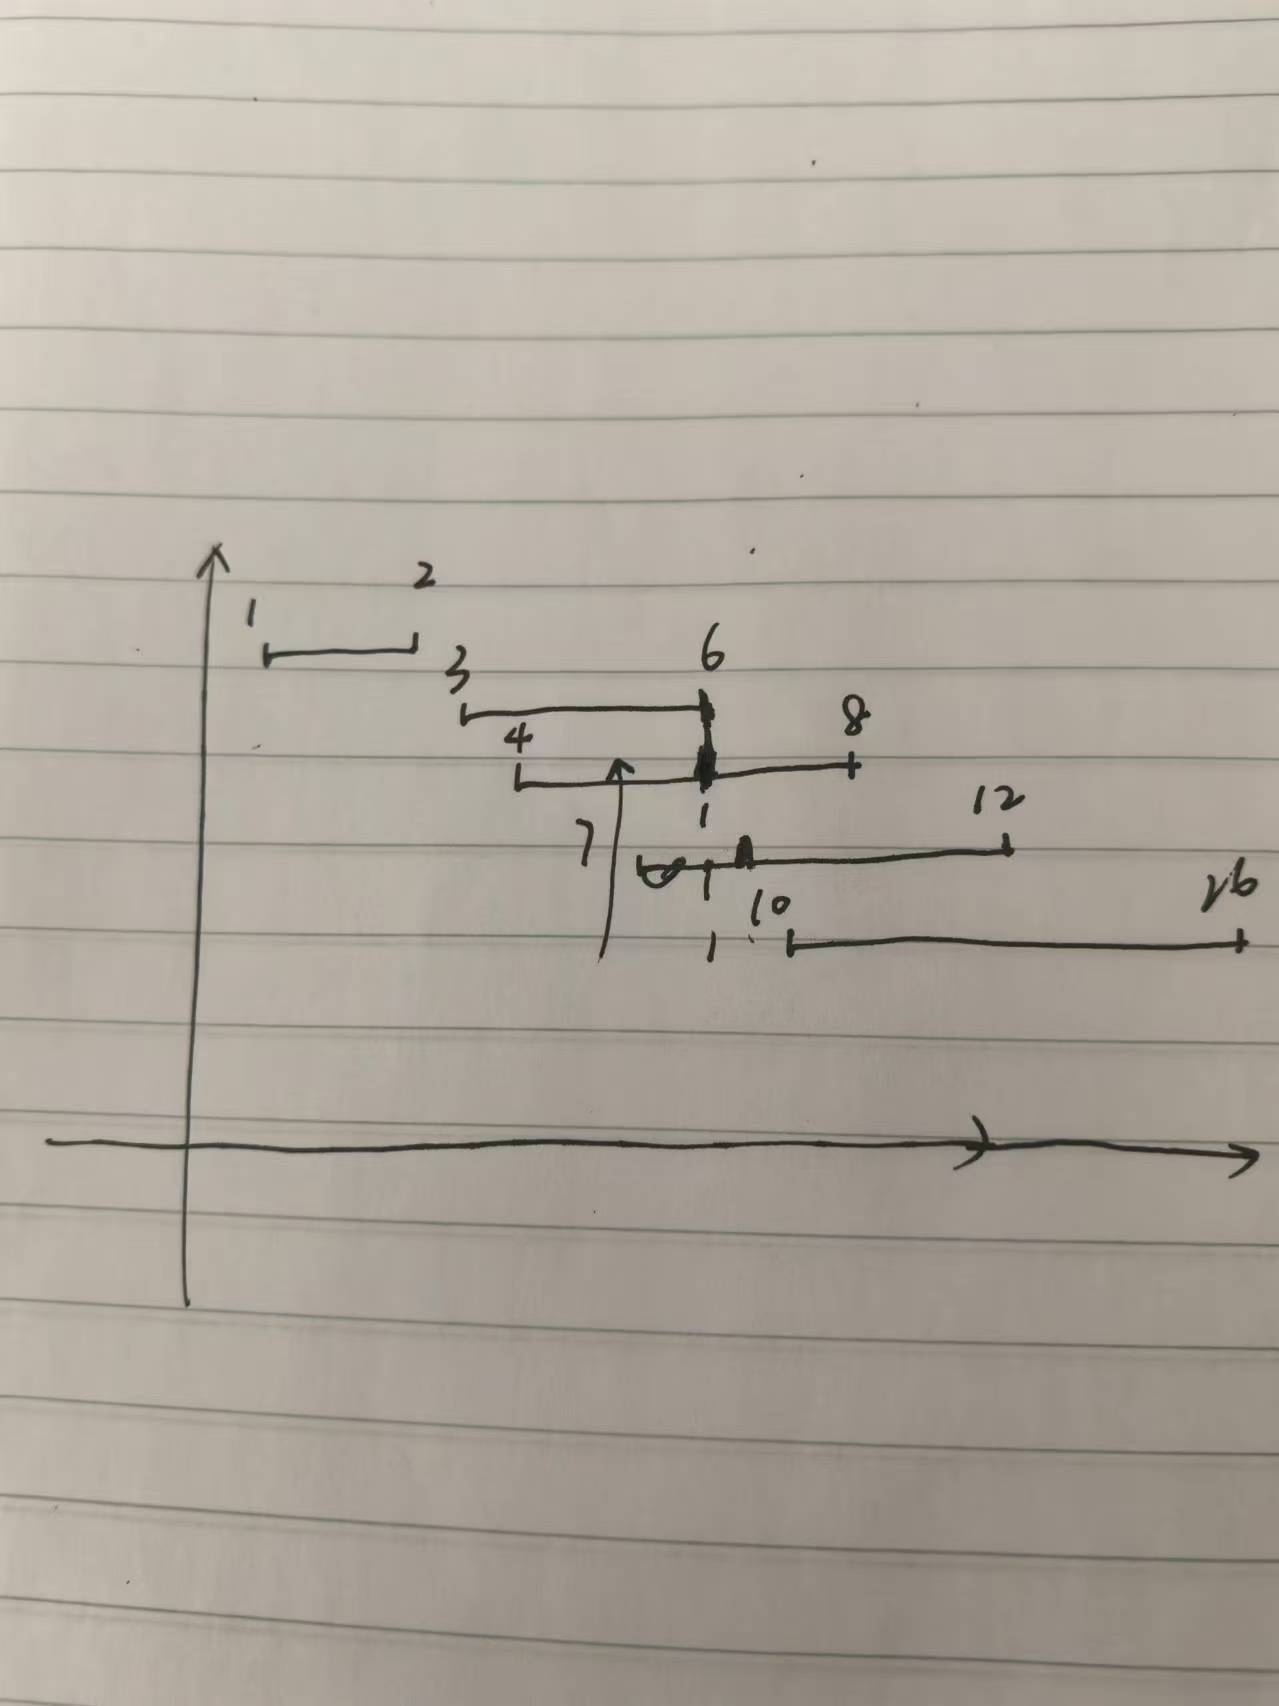 1 2
3 6
4 8
7 12
10 26